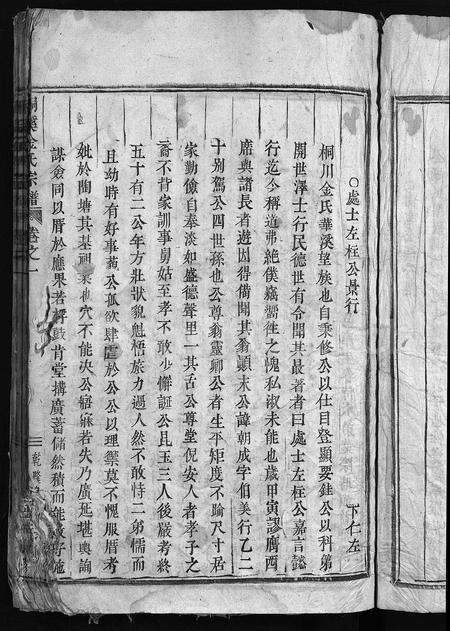 ○處士左柱公景行
下仁左
桐川金氏華溪望族也自乘修公以仕目登顯要銈公以科第
開世澤士行民德世有令聞其最著者曰處士左柱公嘉言懿
行迄今稱道弗絕僕寡儒往之愧私淑未能也歲甲寅謬膺西
席與諸長者遊因得備聞其翁顛末公諱朝成字伯美行乙二
十別駕公四世孫也公尊翁靈卿公者生平矩度不踰尺寸居
家勤儉自奉淡如盛德聲里一其舌公尊堂倪安人者孝子之
裔不背家訓事舅姑至孝不敢少懈誕公昆玉三人後嚴考終
五十有二公年方壯狀貌魁悟旅力過人然不敢恃二弟儒而
且幼時有好事藐公孤欲肆虐於公公以理禦莫不愧服厝考
妣於陶塘其基祖 也穴不能決公寤寐若失乃廣延堪輿詢
謀僉同以厝於應果若 肯堂搆廣蓄儲然積而能 施
溪金氏宗譜
卷之一
乾隆